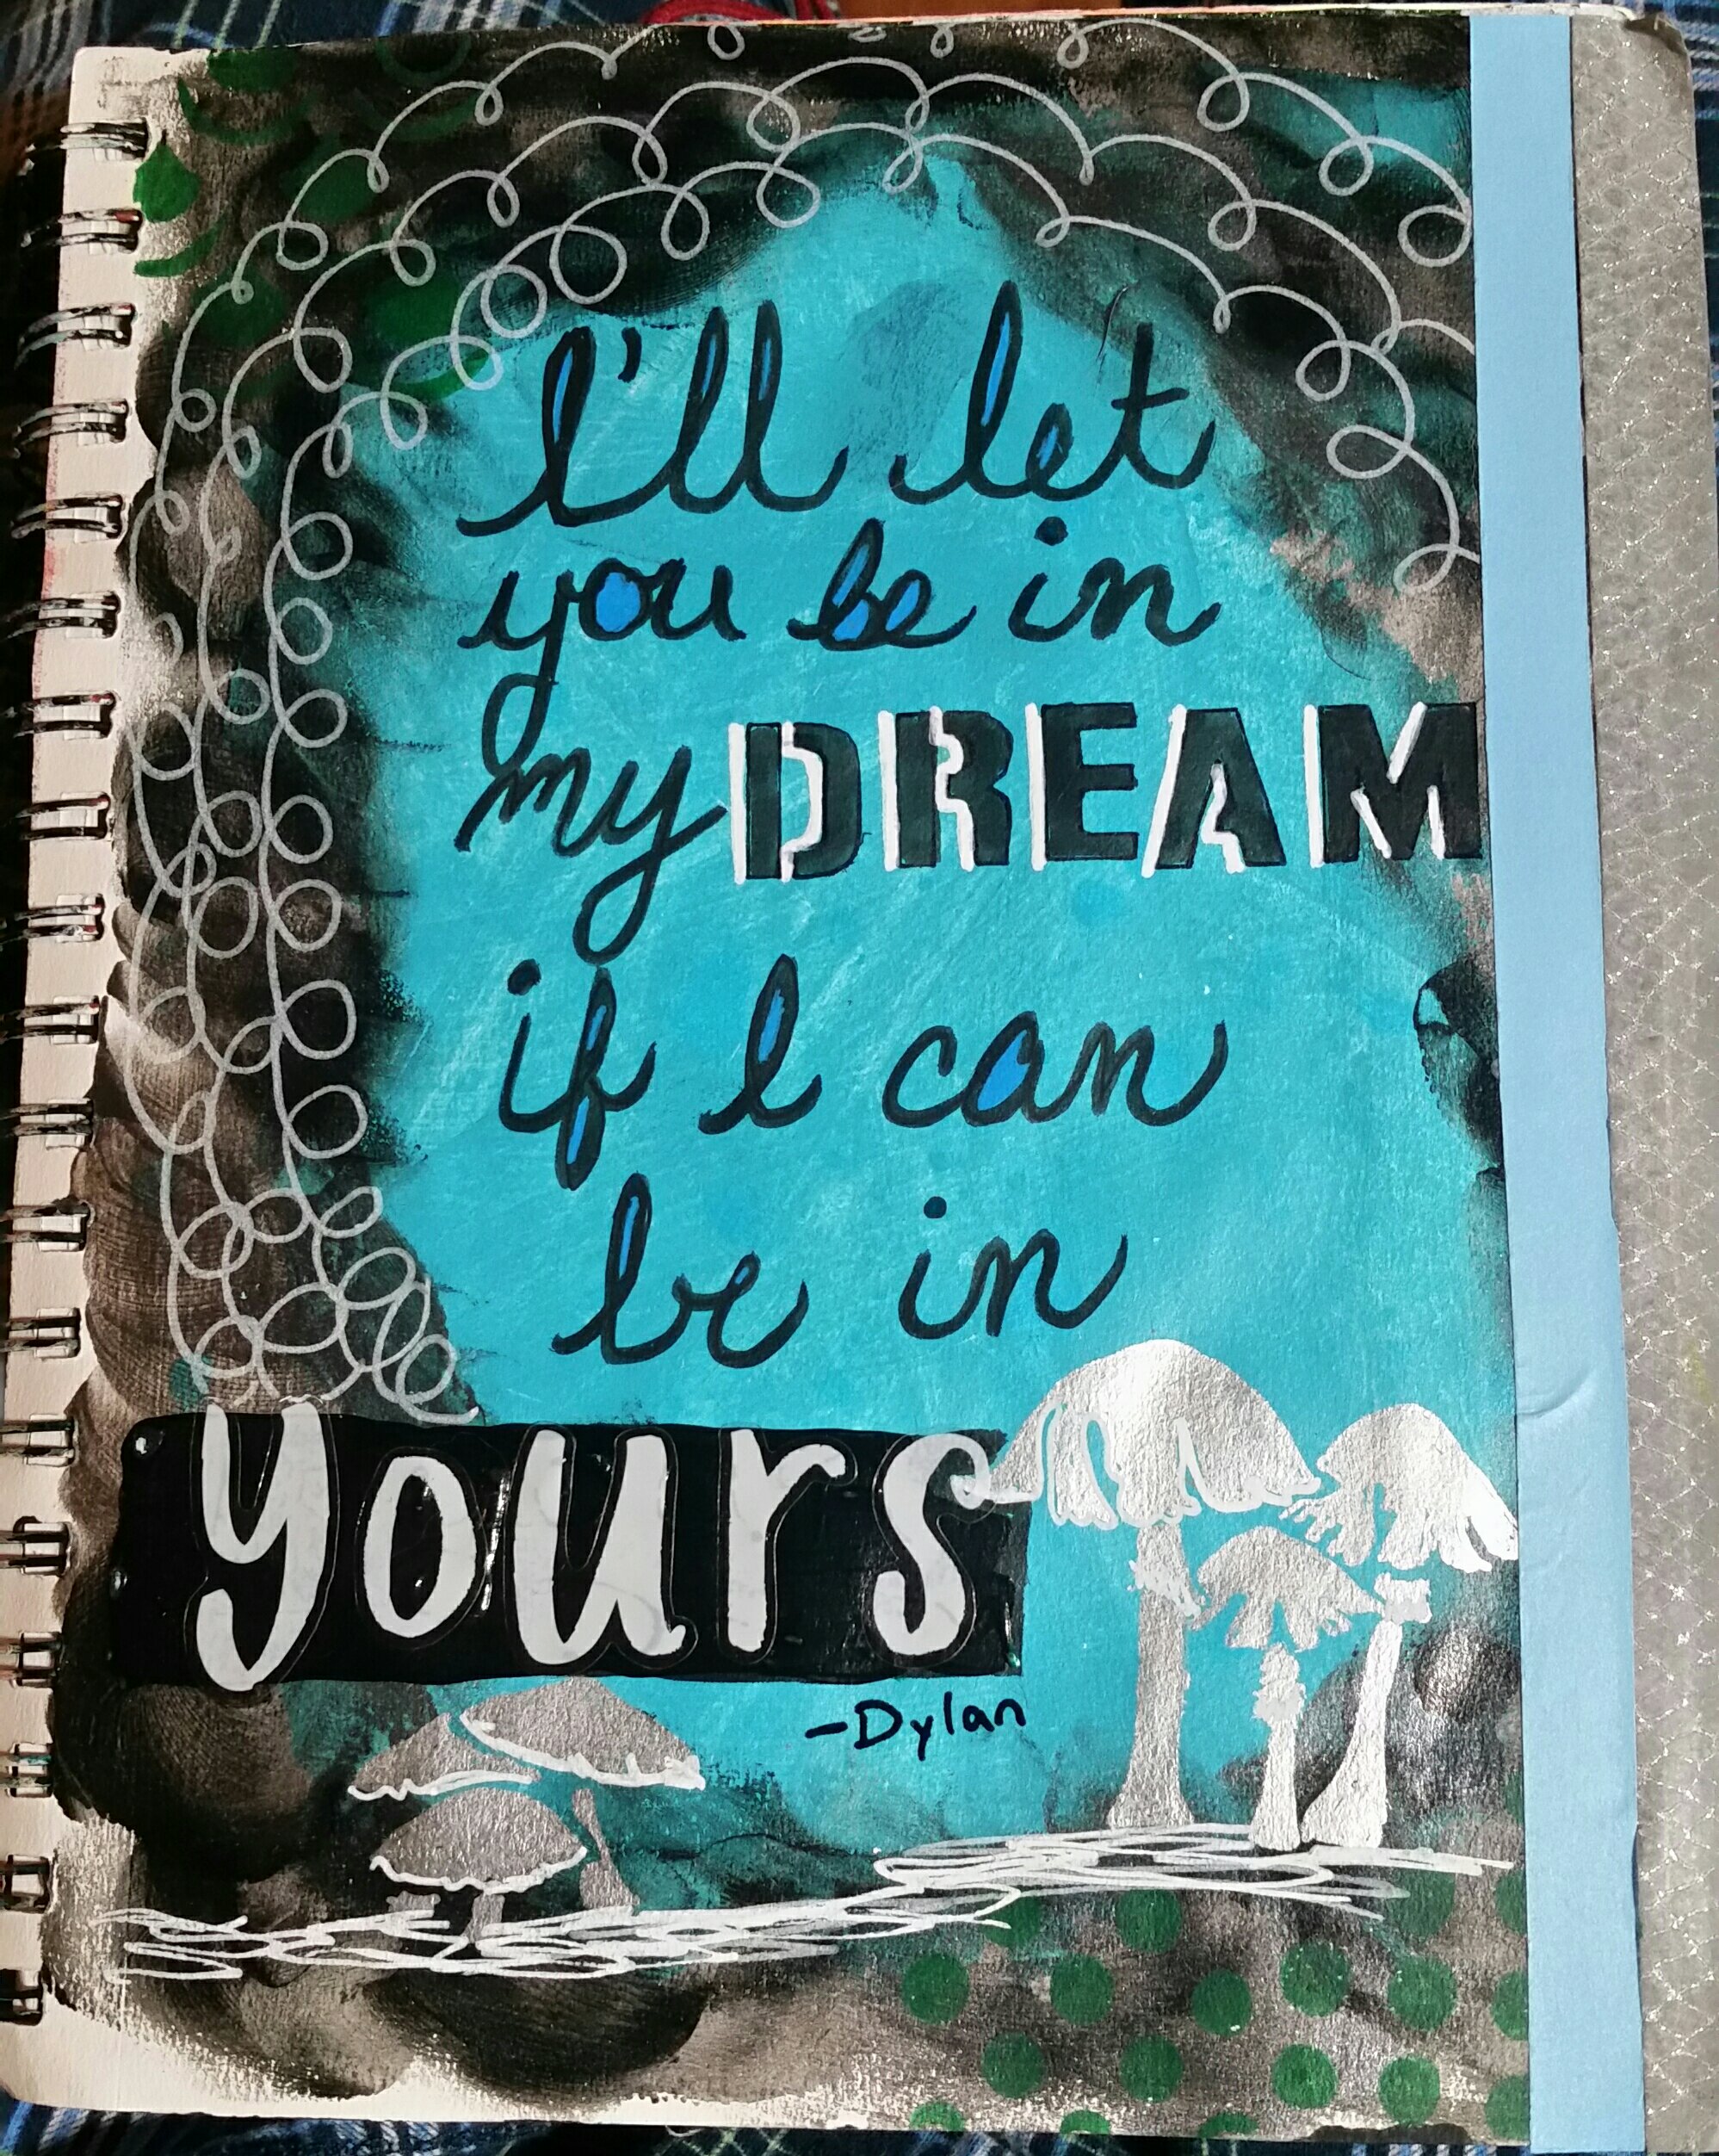 I'll let
you be in
my DREAM
if I can
be in
yours
-Dylan